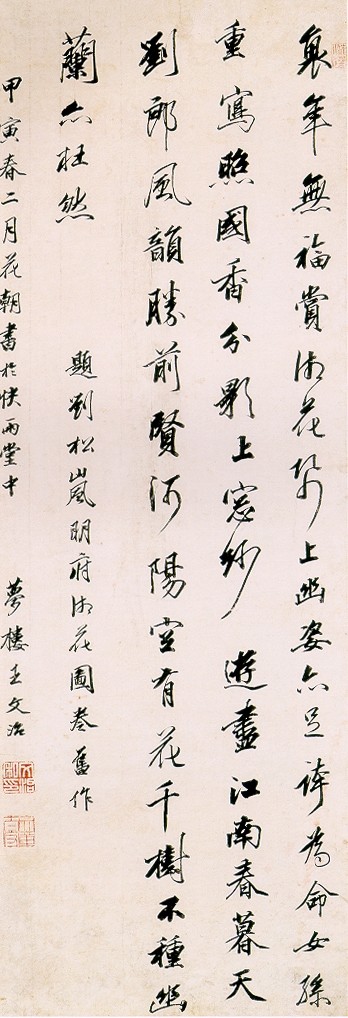 衰年無福賞湘花帋上幽姿亦足誇為命女孫
重寫照國香分影上窓紗 遊盡江南春暮天
劉郎風韻勝前賢河陽空有花千樹不種幽
蘭亦枉然
題劉松嵐明府湘花圖卷舊作
甲寅春二月花朝書於快雨堂中 夢樓王文治